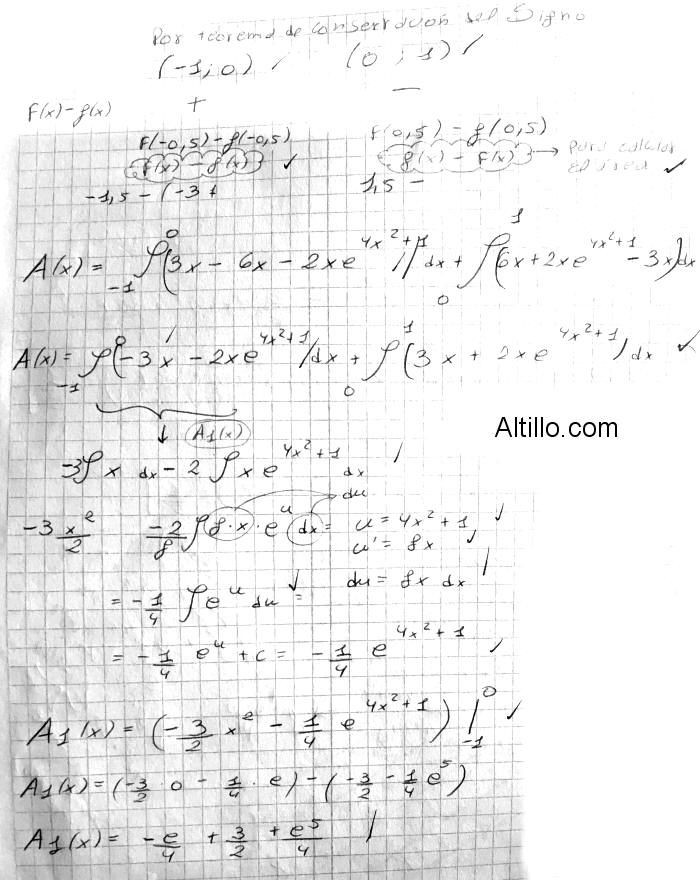 Por teorema de conservación del Signo
(-1; 0) ✓ (0 ; 1) ✓
F(x) - g(x) + −
F(-0,5) - g(-0,5) F(0,5) - g(0,5)
F(x) - g(x) ✓ g(x) - F(x) → Para calcular el área ✓
-1,5 - (-3 + 1,5 -
A(x) = ∫₋₁⁰ (3x - 6x - 2xe^(4x²+1)) dx + ∫₀¹ (6x + 2xe^(4x²+1) - 3x) dx
A(x) = ∫₋₁⁰ (-3x - 2xe^(4x²+1)) dx + ∫₀¹ (3x + 2xe^(4x²+1)) dx ✓
↓ A1(x)
Altillo.com
-3∫x dx - 2 ∫x e^(4x²+1) dx
du
-3 x²/2 -2/8 ∫8·x·e^u dx = u = 4x²+1 ✓
u' = 8x ✓
du = 8x dx
= -1/4 ∫e^u du =
= -1/4 e^u + c = -1/4 e^(4x²+1) ✓
A1(x) = (-3/2 x² - 1/4 e^(4x²+1)) |₋₁⁰ ✓
A1(x) = (-3/2 · 0 - 1/4 · e) - (-3/2 - 1/4 e⁵)
A1(x) = -e/4 + 3/2 + e⁵/4